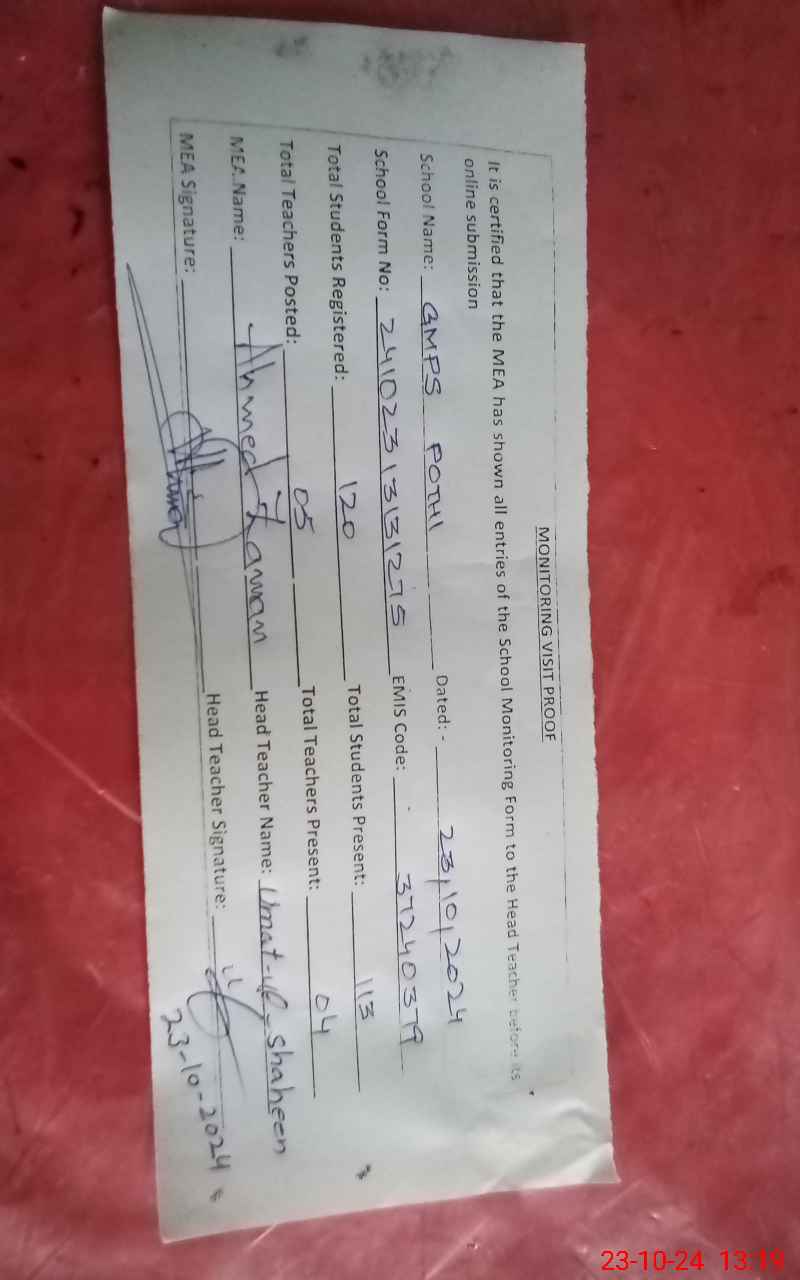 MONITORING VISIT PROOF
It is certified that the MEA has shown all entries of the School Monitoring Form to the Head Teacher before its
online submission
School Name: GMPS POTHI Dated: - 23/10/2024
School Form No: 24102313131275 EMIS Code: 37240379
Total Students Registered: 120 Total Students Present: 113
Total Teachers Posted: 05 Total Teachers Present: 04
MEA Name: Ahmed Zaman Head Teacher Name: Umat-ul-Shaheen
MEA Signature: Head Teacher Signature:
23-10-2024
23-10-24 13:19